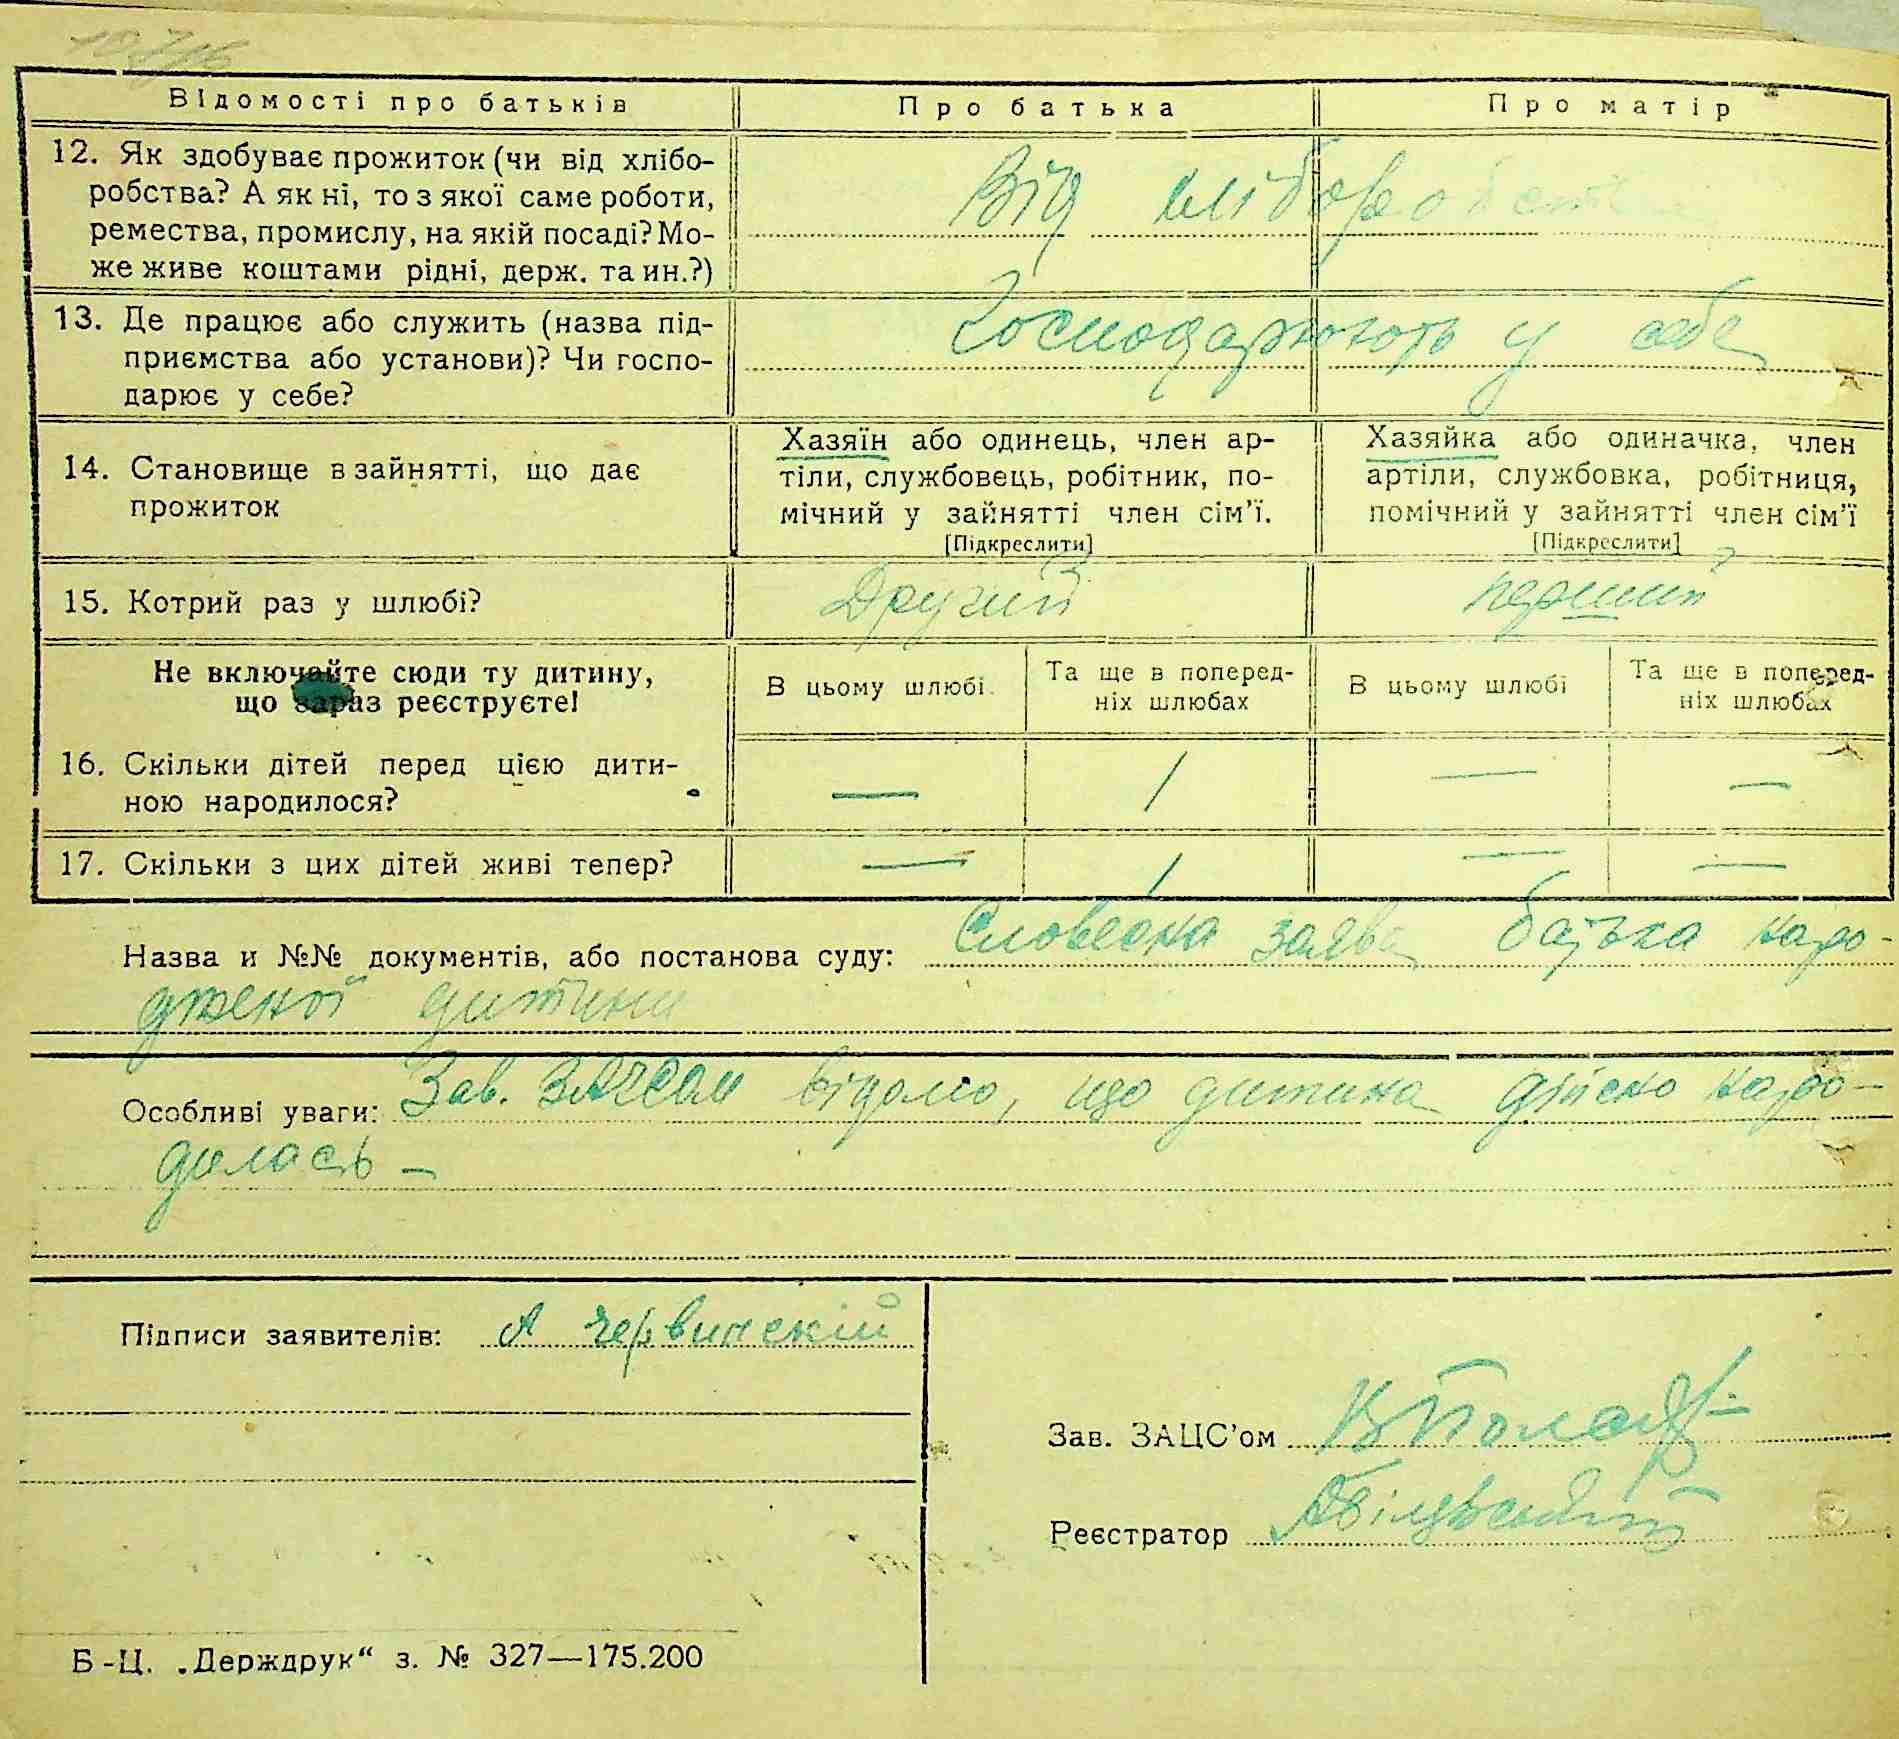 Відомості про батьків Про батька Про матір
12. Як здобуває прожиток (чи від хлібо-
робства? А як ні, то з якої саме роботи,
ремества, промислу, на якій посаді? Мо-
же живе коштами рідні, держ. та ин.?)
Від хліборобства
13. Де працює або служить (назва під-
приємства або установи)? Чи госпо-
дарює у себе?
Господарюють у себе
14. Становище в зайнятті, що дає
прожиток
Хазяїн або одинець, член ар-
тіли, службовець, робітник, по-
мічний у зайнятті член сім'ї.
[Підкреслити]
Хазяйка або одиначка, член
артіли, службовка, робітниця,
помічний у зайнятті член сім'ї
[Підкреслити]
15. Котрий раз у шлюбі? Другий перший
Не включайте сюди ту дитину,
що зараз реєструєте!
В цьому шлюбі
Та ще в поперед-
ніх шлюбах
В цьому шлюбі
Та ще в поперед-
ніх шлюбах
16. Скільки дітей перед цією дити-
ною народилося?
— 1 — —
17. Скільки з цих дітей живі тепер? — 1 — —
Назва и №№ документів, або постанова суду: Словесна заява батька наро-
дженої дитини
Особливі уваги: Зав. ЗАГСом відомо, що дитина дійсно наро-
дилась —
Підписи заявителів: А Червинскій
Зав. ЗАЦС'ом
Реєстратор
Б-Ц. „Держдрук“ з. № 327—175.200